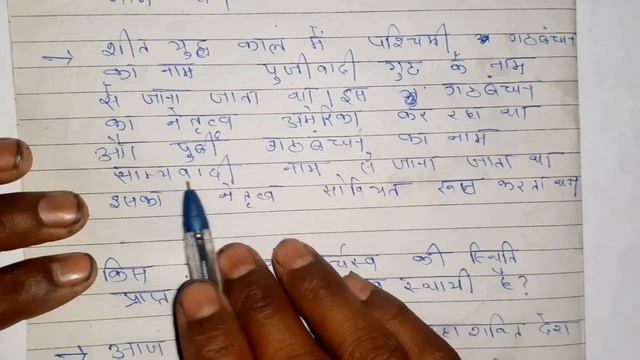 → शीत युद्ध काल में पश्चिमी गठबंधन
का नाम पुजीवादी गुट के नाम
से जाना जाता था। इस गठबंधन
का नेतृत्व अमेरिका कर रहा था
और पुर्वी गठबंधन का नाम
साम्यवादी नाम से जाना जाता था
इसका नेतृत्व सोवियत रूस करता था
किस की स्थिति
प्राप्त स्थायी है?
→ आज शक्ति देश